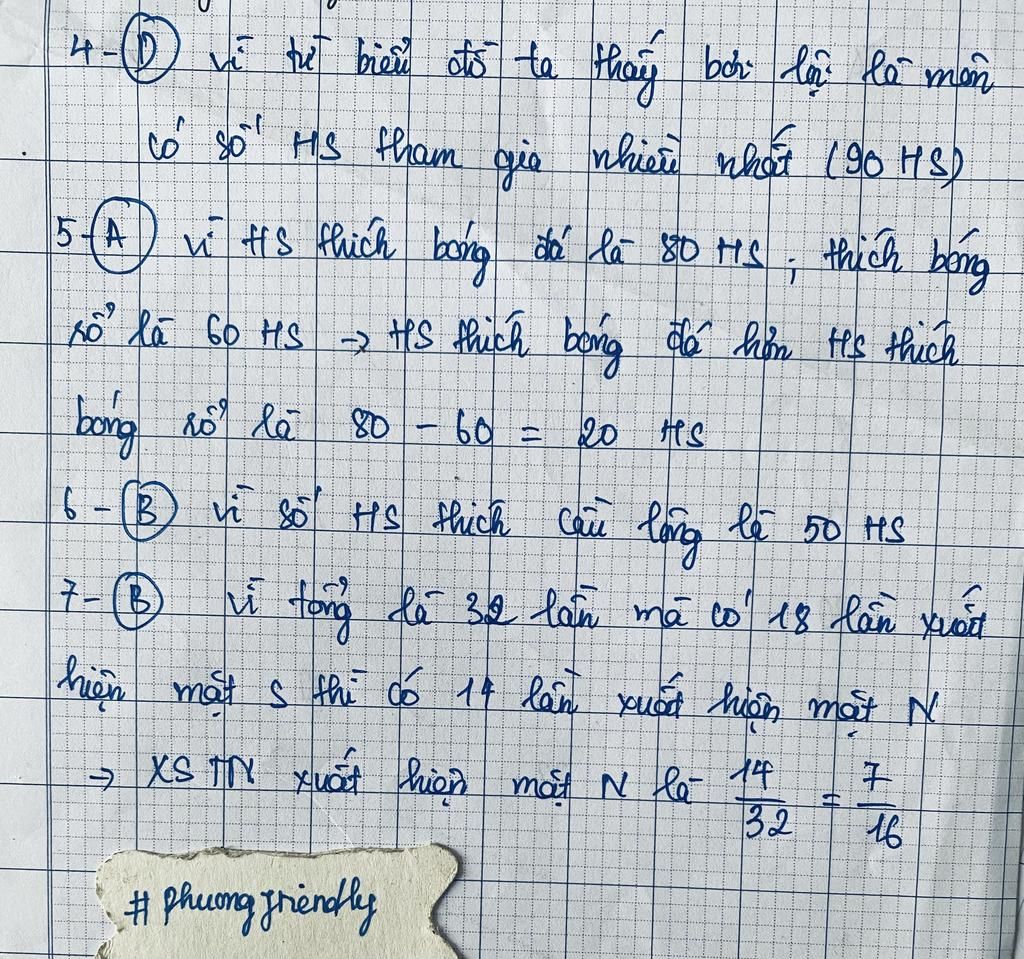 4 - D vì từ biểu đồ ta thấy bơi lội là môn
có số HS tham gia nhiều nhất (90 HS)
5 - A vì HS thích bóng đá là 80 HS; thích bóng
rổ là 60 HS → HS thích bóng đá hơn HS thích
bóng rổ là 80 - 60 = 20 HS
6 - B vì số HS thích cầu lông là 50 HS
7 - B vì tổng là 32 lần mà có 18 lần xuất
hiện mặt S thì có 14 lần xuất hiện mặt N
→ XS TN xuất hiện mặt N là 14/32 = 7/16
# phuong friendly